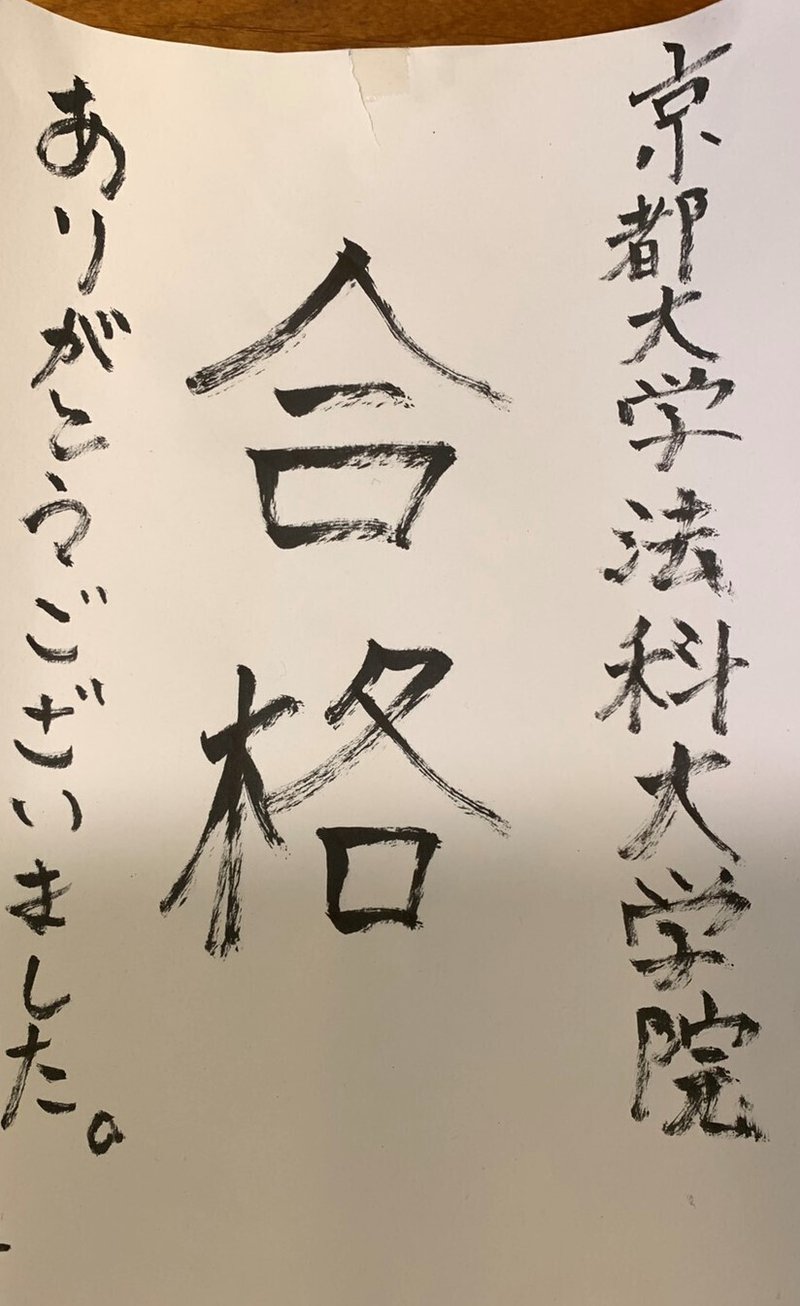 京都大学法科大学院
合格
ありがとうございました。